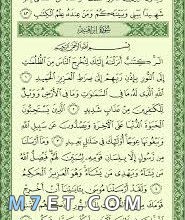 شَهِيدًا بَيْنِي وَبَيْنَكُمْ وَمَنْ عِندَهُ عِلْمُ الْكِتَابِ ٤٣
سُورَةُ إِبْرَاهِيمَ
بِسْمِ اللَّهِ الرَّحْمَٰنِ الرَّحِيمِ
الٓر كِتَٰبٌ أَنزَلْنَٰهُ إِلَيْكَ لِتُخْرِجَ النَّاسَ مِنَ الظُّلُمَٰتِ
إِلَى النُّورِ بِإِذْنِ رَبِّهِمْ إِلَىٰ صِرَٰطِ الْعَزِيزِ الْحَمِيدِ ١
اللَّهِ الَّذِي لَهُ مَا فِي السَّمَٰوَٰتِ وَمَا فِي الْأَرْضِ وَوَيْلٌ
لِّلْكَٰفِرِينَ مِنْ عَذَابٍ شَدِيدٍ ٢ الَّذِينَ يَسْتَحِبُّونَ
الْحَيَوٰةَ الدُّنْيَا عَلَى الْآخِرَةِ وَيَصُدُّونَ عَن سَبِيلِ اللَّهِ
وَيَبْغُونَهَا عِوَجًا أُولَٰئِكَ فِي ضَلَٰلٍ بَعِيدٍ ٣ وَمَا أَرْسَلْنَا
مِن رَّسُولٍ إِلَّا بِلِسَانِ قَوْمِهِ لِيُبَيِّنَ لَهُمْ فَيُضِلُّ اللَّهُ
مَن يَشَاءُ وَيَهْدِي مَن يَشَاءُ وَهُوَ
وَلَقَدْ أَرْسَلْنَا مُوسَىٰ بِآيَٰتِنَا أَنْ أَخْرِجْ
M7ET.COM